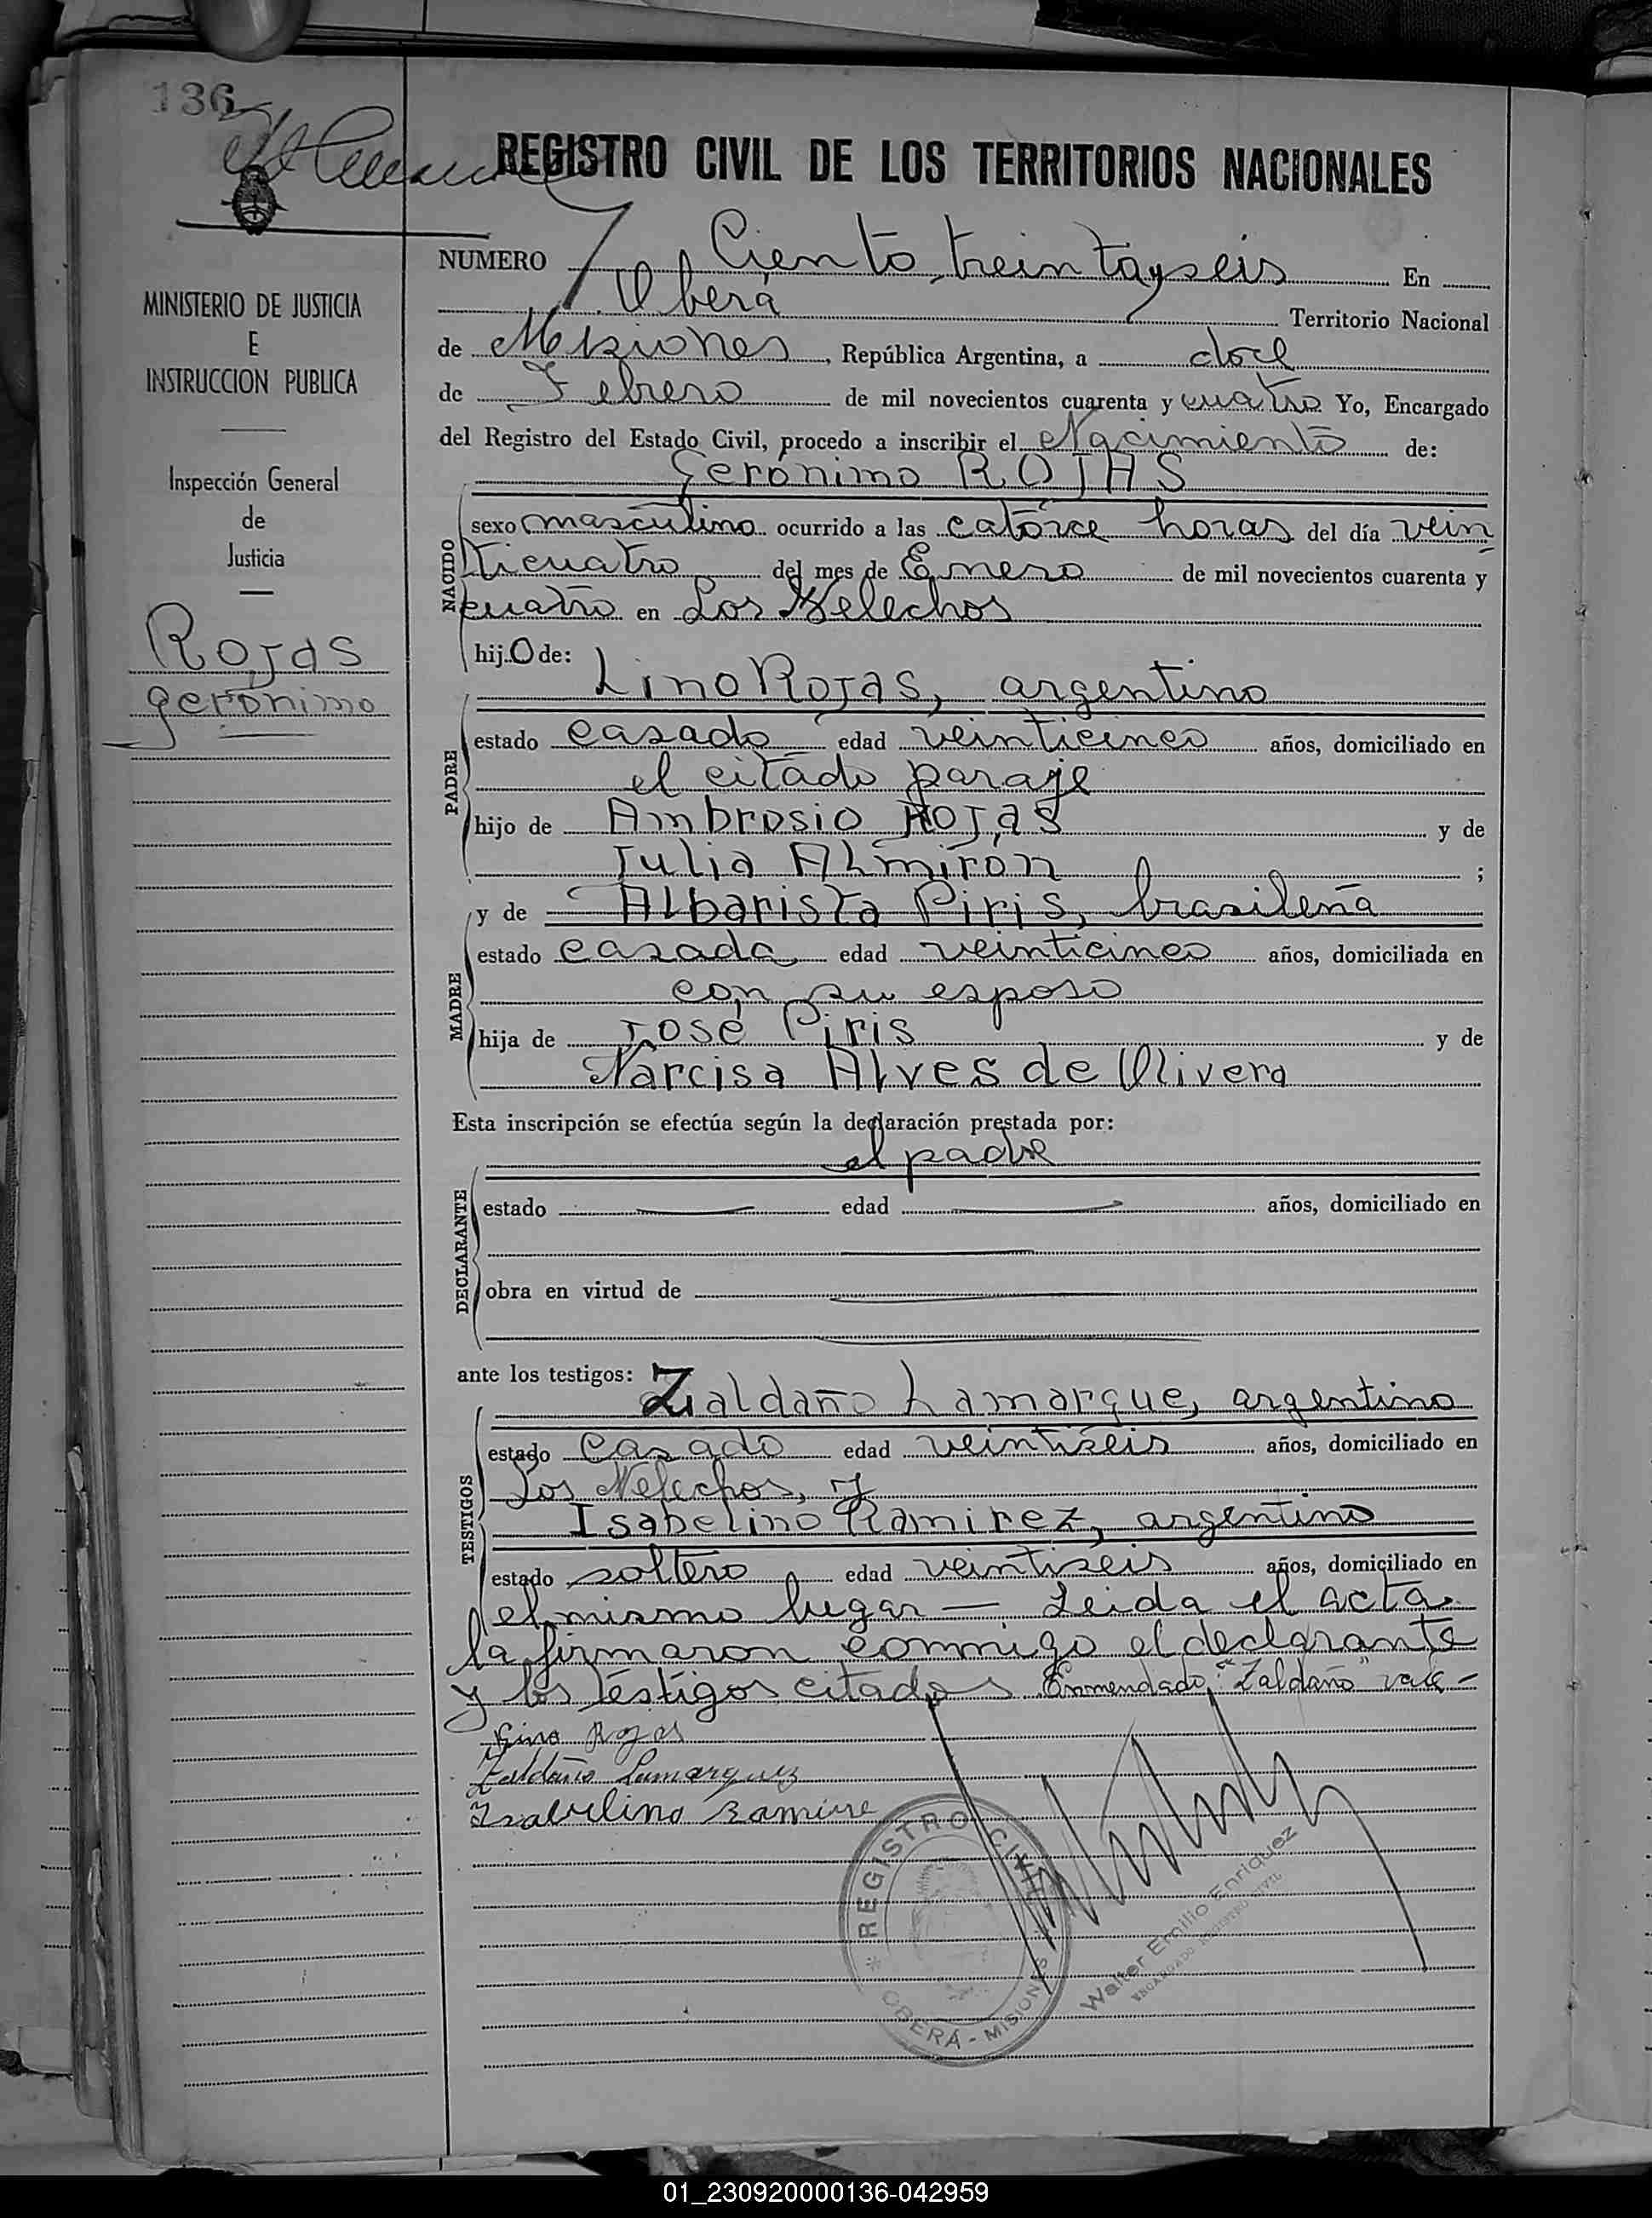 136
REGISTRO CIVIL DE LOS TERRITORIOS NACIONALES
NUMERO Ciento treinta y seis En
Oberá Territorio Nacional
de Misiones, República Argentina, a doce
de Febrero de mil novecientos cuarenta y cuatro Yo, Encargado
del Registro del Estado Civil, procedo a inscribir el Nacimiento de:
Gerónimo ROJAS
NACIDO
sexo masculino ocurrido a las catorce horas del día vein
ticuatro del mes de Enero de mil novecientos cuarenta y
cuatro en Los Helechos
hijo de:
PADRE
Lino Rojas, argentino
estado casado edad veinticinco años, domiciliado en
el citado paraje
hijo de Ambrosio Rojas y de
Julia Almirón ;
MADRE
y de Albarista Piris, brasileña
estado casada edad veinticinco años, domiciliada en
con su esposo
hija de José Piris y de
Narcisa Alves de Olivera
Esta inscripción se efectúa según la declaración prestada por:
el padre
DECLARANTE
estado — edad — años, domiciliado en
—
obra en virtud de —
—
ante los testigos:
TESTIGOS
Zaldaño Lamarque, argentino
estado casado edad veintiseis años, domiciliado en
Los Helechos, y
Isabelino Ramirez, argentino
estado soltero edad veintiseis años, domiciliado en
el mismo lugar — Leida el acta
la firmaron conmigo el declarante
y los testigos citados Enmendado: "Zaldaño" vale -
Lino Rojas
Zaldaño Lamarquez
Isabelino Ramire
REGISTRO CIVIL
OBERÁ - MISIONES
Walter Emilio Enriquez
ENCARGADO REGISTRO CIVIL
MINISTERIO DE JUSTICIA
E
INSTRUCCION PUBLICA
Inspección General
de
Justicia
Rojas
Gerónimo
01_230920000136-042959